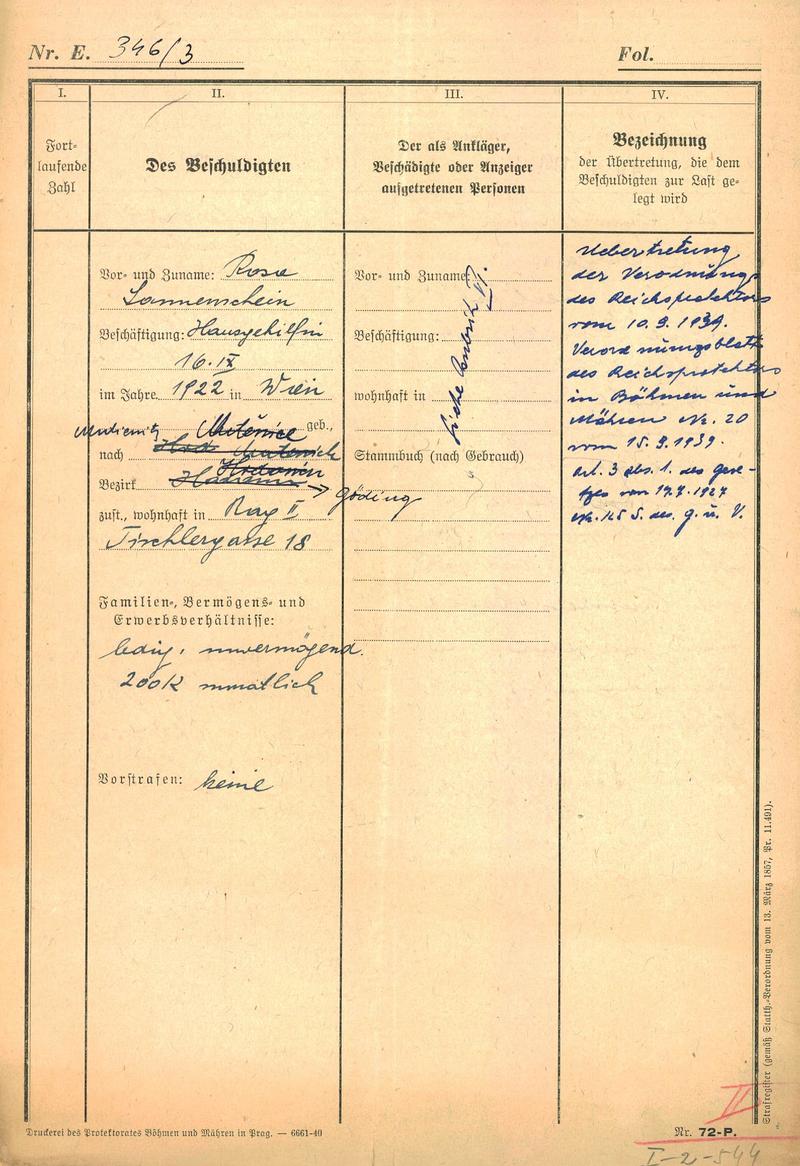 Nr. E. 346/3
Fol.
I.
II.
III.
IV.
Fort-
laufende
Zahl
Des Beschuldigten
Der als Ankläger,
Beschädigte oder Anzeiger
aufgetretenen Personen
Bezeichnung
der Übertretung, die dem
Beschuldigten zur Last ge-
legt wird
Vor- und Zuname: Rosa
Sonnenschein
Beschäftigung: Hausgehilfin
16. IX
im Jahre 1922 in Wien
geb.,
nach
Bezirk → Göding
zust., wohnhaft in Prag II
Tischlergasse 18
Familien-, Vermögens- und
Erwerbsverhältnisse:
ledig, unvermögend.
200 K monatlich
Vorstrafen: keine
Vor- und Zuname:
Beschäftigung:
wohnhaft in
Stammbuch (nach Gebrauch)
siehe Rubrik VI.
Uebertretung
der Verordnung
des Reichsprotektors
vom 10.9.1939.
Verordnungsblatt
des Reichsprotektors
in Böhmen und
Mähren Nr. 20
vom 15.9.1939.
Art. 3 Abs. 1. des Gese-
tzes vom
S. d. G. u. V.
Strafregister (gemäß Statth.-Verordnung vom 13. März 1857, Pr. 11.491).
Druckerei des Protektorates Böhmen und Mähren in Prag. — 6661-40
II
Nr. 72-P.
I-2-544